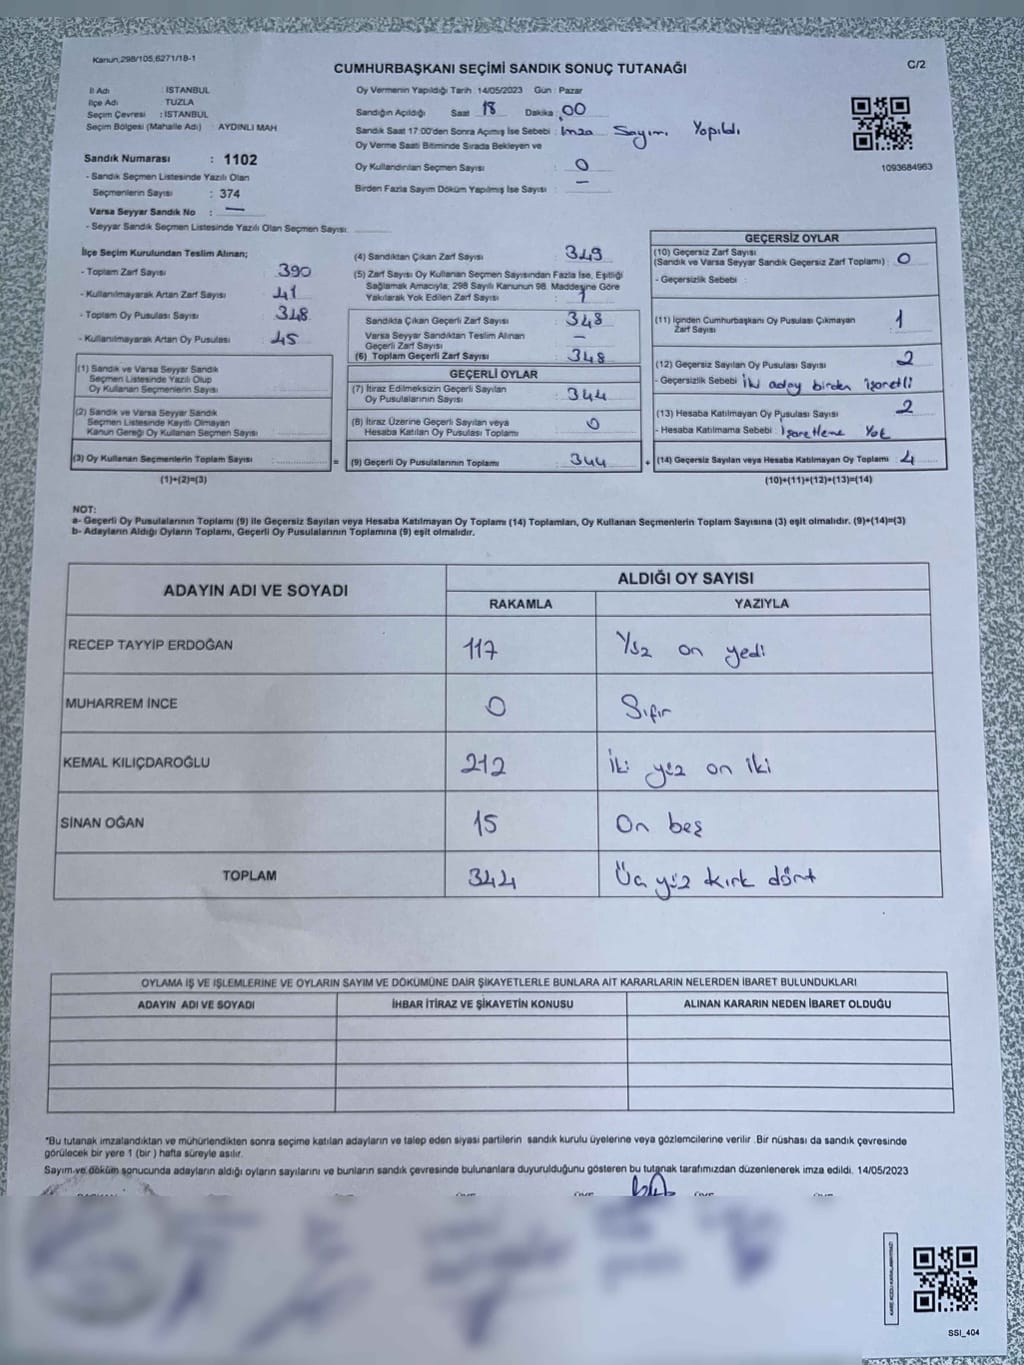 Kanun,298/105,6271/18-1
CUMHURBAŞKANI SEÇİMİ SANDIK SONUÇ TUTANAĞI
C/2
İl Adı : İSTANBUL
İlçe Adı : TUZLA
Seçim Çevresi : İSTANBUL
Seçim Bölgesi (Mahalle Adı) : AYDINLI MAH
Sandık Numarası : 1102
- Sandık Seçmen Listesinde Yazılı Olan
Seçmenlerin Sayısı : 374
Varsa Seyyar Sandık No : —
- Seyyar Sandık Seçmen Listesinde Yazılı Olan Seçmen Sayısı:
Oy Vermenin Yapıldığı Tarih :14/05/2023 Gün : Pazar
Sandığın Açıldığı Saat 18 Dakika : 00
Sandık Saat 17:00'den Sonra Açımış İse Sebebi : İmza Sayımı Yapıldı
Oy Verme Saati Bitiminde Sırada Bekleyen ve
Oy Kullandırılan Seçmen Sayısı : 0
Birden Fazla Sayım Döküm Yapılmış İse Sayısı : —
1093684963
İlçe Seçim Kurulundan Teslim Alınan;
- Toplam Zarf Sayısı : 390
- Kullanılmayarak Artan Zarf Sayısı : 41
- Toplam Oy Pusulası Sayısı : 348
- Kullanılmayarak Artan Oy Pusulası : 45
(1) Sandık ve Varsa Seyyar Sandık
Seçmen Listesinde Yazılı Olup
Oy Kullanan Seçmenlerin Sayısı :
(2) Sandık ve Varsa Seyyar Sandık
Seçmen Listesinde Kayıtlı Olmayan
Kanun Gereği Oy Kullanan Seçmen Sayısı :
(3) Oy Kullanan Seçmenlerin Toplam Sayısı :
=
(1)+(2)=(3)
(4) Sandıktan Çıkan Zarf Sayısı : 349
(5) Zarf Sayısı Oy Kullanan Seçmen Sayısından Fazla İse, Eşitliği
Sağlamak Amacıyla, 298 Sayılı Kanunun 98. Maddesine Göre
Yakılarak Yok Edilen Zarf Sayısı : 1
Sandıkta Çıkan Geçerli Zarf Sayısı : 348
Varsa Seyyar Sandıktan Teslim Alınan
Geçerli Zarf Sayısı : —
(6) Toplam Geçerli Zarf Sayısı : 348
GEÇERLİ OYLAR
(7) İtiraz Edilmeksizin Geçerli Sayılan
Oy Pusulalarının Sayısı : 344
(8) İtiraz Üzerine Geçerli Sayılan veya
Hesaba Katılan Oy Pusulası Toplamı : 0
(9) Geçerli Oy Pusulalarının Toplamı : 344
+
GEÇERSİZ OYLAR
(10) Geçersiz Zarf Sayısı
(Sandık ve Varsa Seyyar Sandık Geçersiz Zarf Toplamı) : 0
- Geçersizlik Sebebi :
(11) İçinden Cumhurbaşkanı Oy Pusulası Çıkmayan
Zarf Sayısı : 1
(12) Geçersiz Sayılan Oy Pusulası Sayısı : 2
- Geçersizlik Sebebi : İki aday birden işaretli
(13) Hesaba Katılmayan Oy Pusulası Sayısı : 2
- Hesaba Katılmama Sebebi : İşaretleme Yok
(14) Geçersiz Sayılan veya Hesaba Katılmayan Oy Toplamı : 4
(10)+(11)+(12)+(13)=(14)
NOT:
a- Geçerli Oy Pusulalarının Toplamı (9) ile Geçersiz Sayılan veya Hesaba Katılmayan Oy Toplamı (14) Toplamları, Oy Kullanan Seçmenlerin Toplam Sayısına (3) eşit olmalıdır. (9)+(14)=(3)
b- Adayların Aldığı Oyların Toplamı, Geçerli Oy Pusulalarının Toplamına (9) eşit olmalıdır.
ADAYIN ADI VE SOYADI
ALDIĞI OY SAYISI
RAKAMLA YAZIYLA
RECEP TAYYİP ERDOĞAN 117 Yüz on yedi
MUHARREM İNCE 0 Sıfır
KEMAL KILIÇDAROĞLU 212 İki yüz on iki
SİNAN OĞAN 15 On beş
TOPLAM 344 Üç yüz kırk dört
OYLAMA İŞ VE İŞLEMLERİNE VE OYLARIN SAYIM VE DÖKÜMÜNE DAİR ŞİKAYETLERLE BUNLARA AİT KARARLARIN NELERDEN İBARET BULUNDUKLARI
ADAYIN ADI VE SOYADI İHBAR İTİRAZ VE ŞİKAYETİN KONUSU ALINAN KARARIN NEDEN İBARET OLDUĞU
*Bu tutanak imzalandıktan ve mühürlendikten sonra seçime katılan adayların ve talep eden siyasi partilerin sandık kurulu üyelerine veya gözlemcilerine verilir .Bir nüshası da sandık çevresinde
görülecek bir yere 1 (bir ) hafta süreyle asılır.
Sayım ve döküm sonucunda adayların aldığı oyların sayılarını ve bunların sandık çevresinde bulunanlara duyurulduğunu gösteren bu tutanak tarafımızdan düzenlenerek imza edildi. 14/05/2023
SSI_404